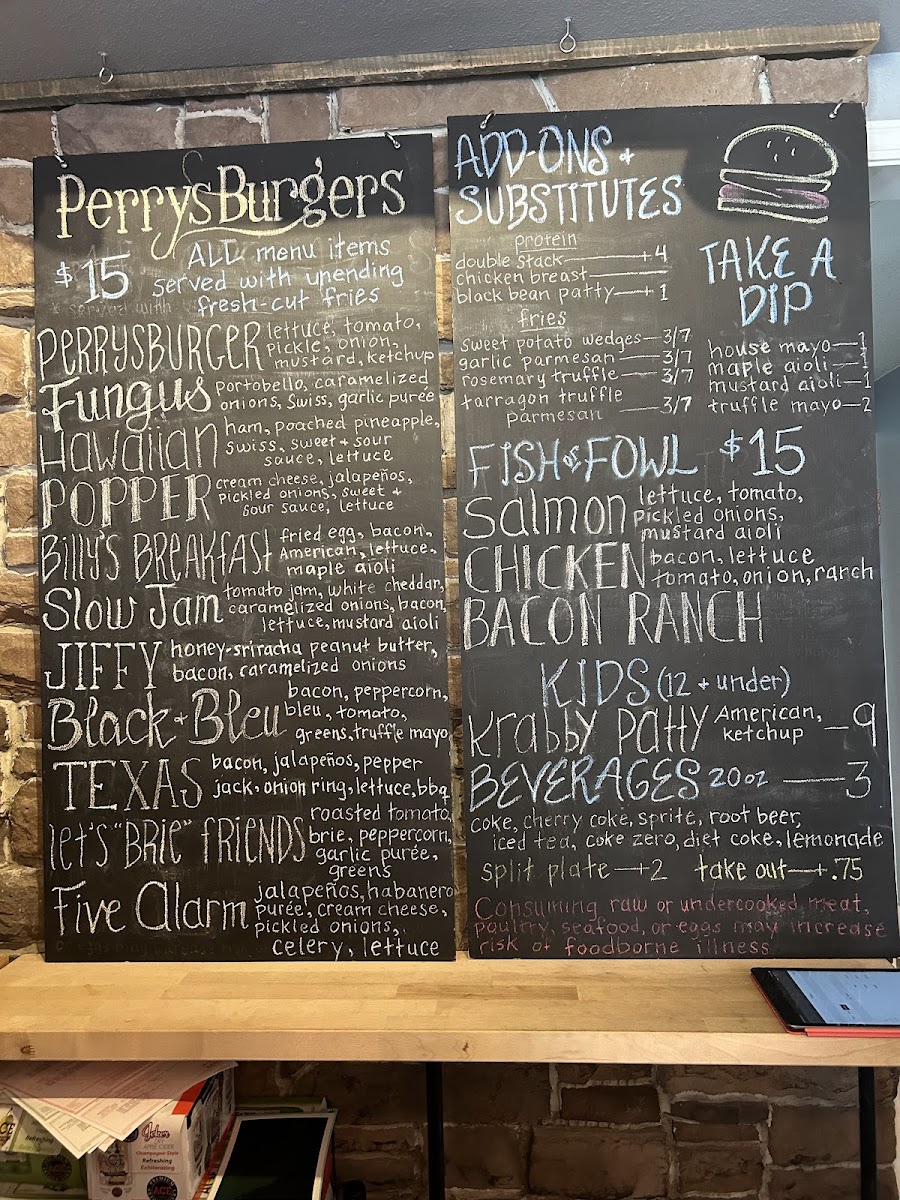 PerrysBurgers
$15
ALL menu items
served with unending
fresh-cut fries
PERRYSBURGER
lettuce, tomato,
pickle, onion,
mustard, ketchup
Fungus
portobello, caramelized
onions, Swiss, garlic purée
Hawaiian
ham, poached pineapple,
swiss, sweet + sour
sauce, lettuce
POPPER
cream cheese, jalapeños,
pickled onions, sweet +
sour sauce, lettuce
Billy's BREAKFAST
fried egg, bacon,
American, lettuce,
maple aioli
Slow Jam
tomato jam, white cheddar,
caramelized onions, bacon,
lettuce, mustard aioli
JIFFY
honey-sriracha peanut butter,
bacon, caramelized onions
Black + Bleu
bacon, peppercorn,
bleu, tomato,
greens, truffle mayo
TEXAS
bacon, jalapeños, pepper
jack, onion ring, lettuce, bbq
let's "BRIE" FRIENDS
roasted tomato,
brie, peppercorn,
garlic purée,
greens
Five Alarm
jalapeños, habanero
purée, cream cheese,
pickled onions,
celery, lettuce
ADD-ONS +
SUBSTITUTES
protein
double stack—+4
chicken breast—
black bean patty—+1
fries
sweet potato wedges—3/7
garlic parmesan—3/7
rosemary truffle—3/7
tarragon truffle
parmesan —3/7
TAKE A
DIP
house mayo—1
maple aioli—1
mustard aioli—1
truffle mayo—2
FISH or FOWL $15
Salmon
lettuce, tomato,
pickled onions,
mustard aioli
CHICKEN
BACON RANCH
bacon, lettuce
tomato, onion, ranch
KIDS (12 + under)
Krabby Patty
American,
ketchup —9
BEVERAGES 20oz —3
coke, cherry coke, sprite, root beer,
iced tea, coke zero, diet coke, lemonade
split plate—+2 take out—+.75
Consuming raw or undercooked meat,
poultry, seafood, or eggs may increase
risk of foodborne illness
Joker
APPLE CIDER
Champagne Style
Refreshing
Exhilarating
ACE